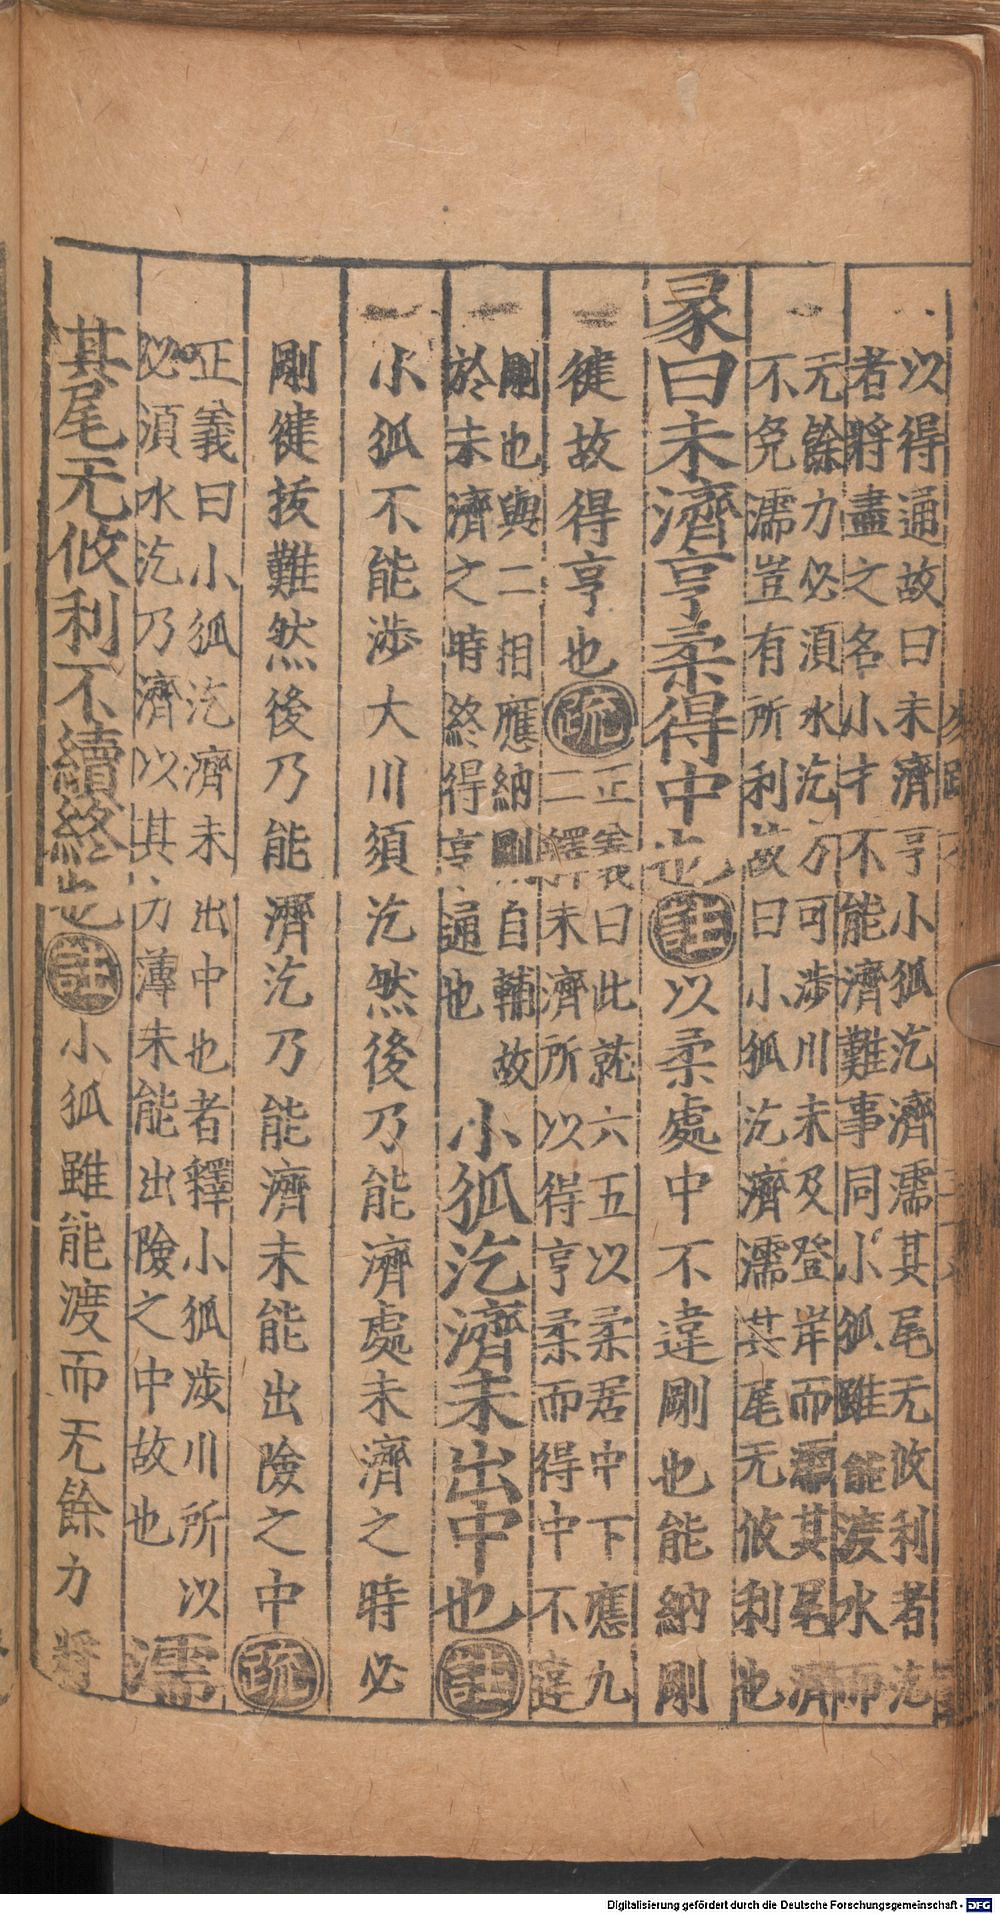 以得通故曰未濟亨小狐汔濟濡其尾无攸利者汔
者將盡之名小才不能濟難事同小狐雖能渡水而
无餘力必須水汔方可涉川未及登岸而濡其尾濟
不免濡豈有所利故曰小狐汔濟濡其尾无攸利也
彖曰未濟亨柔得中也註以柔處中不違剛也能納剛
健故得亨也疏
正義曰此就六五以柔居中下應九
二釋未濟所以得亨柔而得中不違
剛也與二相應納剛自輔故
於未濟之時終得亨通也
小狐汔濟未出中也註
小狐不能涉大川須汔然後乃能濟處未濟之時必
剛健拔難然後乃能濟汔乃能濟未能出險之中疏
正義曰小狐汔濟未出中也者釋小狐涉川所以
必須水汔乃濟以其力薄未能出險之中故也
濡
其尾无攸利不續終也註小狐雖能渡而无餘力將
Digitalisierung gefördert durch die Deutsche Forschungsgemeinschaft - DFG